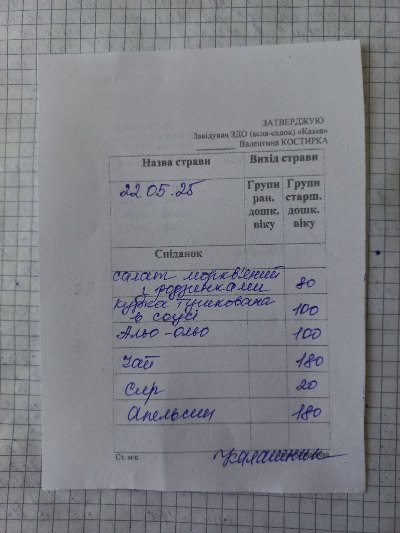 ЗАТВЕРДЖУЮ
Завідувач ЗДО (ясла-садок) «Казка»
Валентина КОСТИРКА
Назва страви Вихід страви
22 05.25 Групи ран. дошк. віку Групи старш. дошк. віку
Сніданок
Салат морквяний
з родзинками 80
Курка тушкована
в соусі 100
Альо-ольо 100
Чай 180
Сир 20
Апельсин 180
Ст. м/с